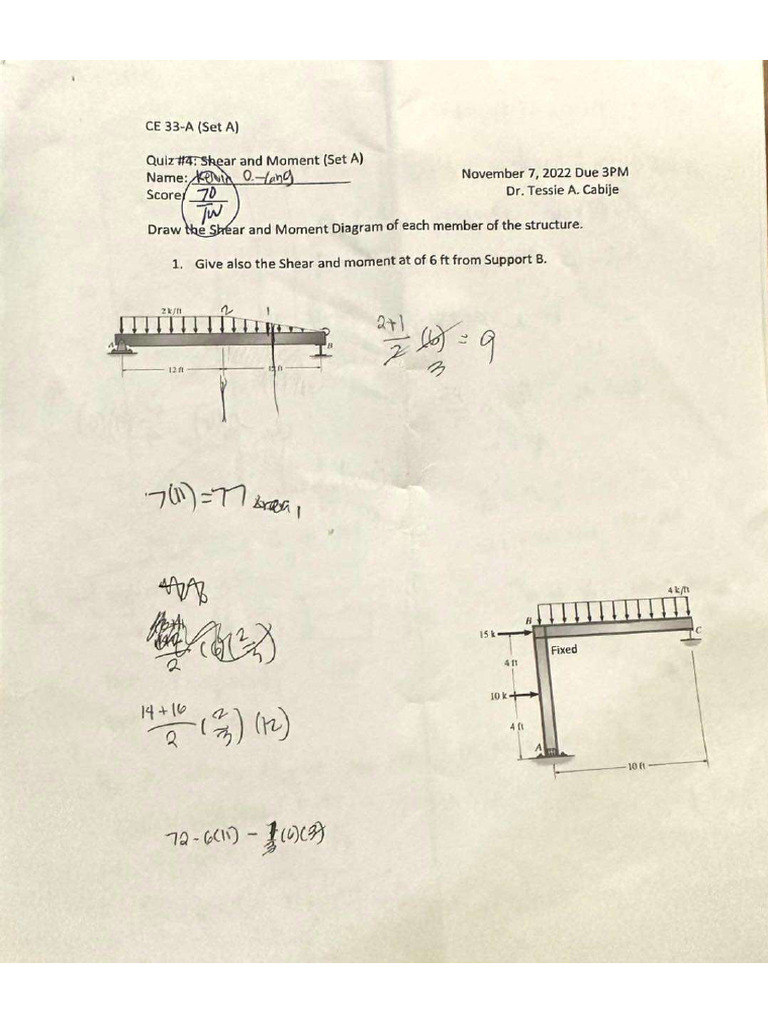 CE 33-A (Set A)
Quiz #4: Shear and Moment (Set A)
Name: Kelvin O. Tang
November 7, 2022 Due 3PM
Score: 70
Dr. Tessie A. Cabije
Draw the Shear and Moment Diagram of each member of the structure.
1. Give also the Shear and moment at of 6 ft from Support B.
2 k/ft 2 1
A B
12 ft 12 ft
2+1
2 (6) = 9
3
7(11) = 77 Area 1
2 (6)(2/3)
14+16
2 (2/3) (12)
72 - 6(11) - (6)(3)
4 k/ft
B
15 k C
Fixed
4 ft
10 k
4 ft
A
10 ft